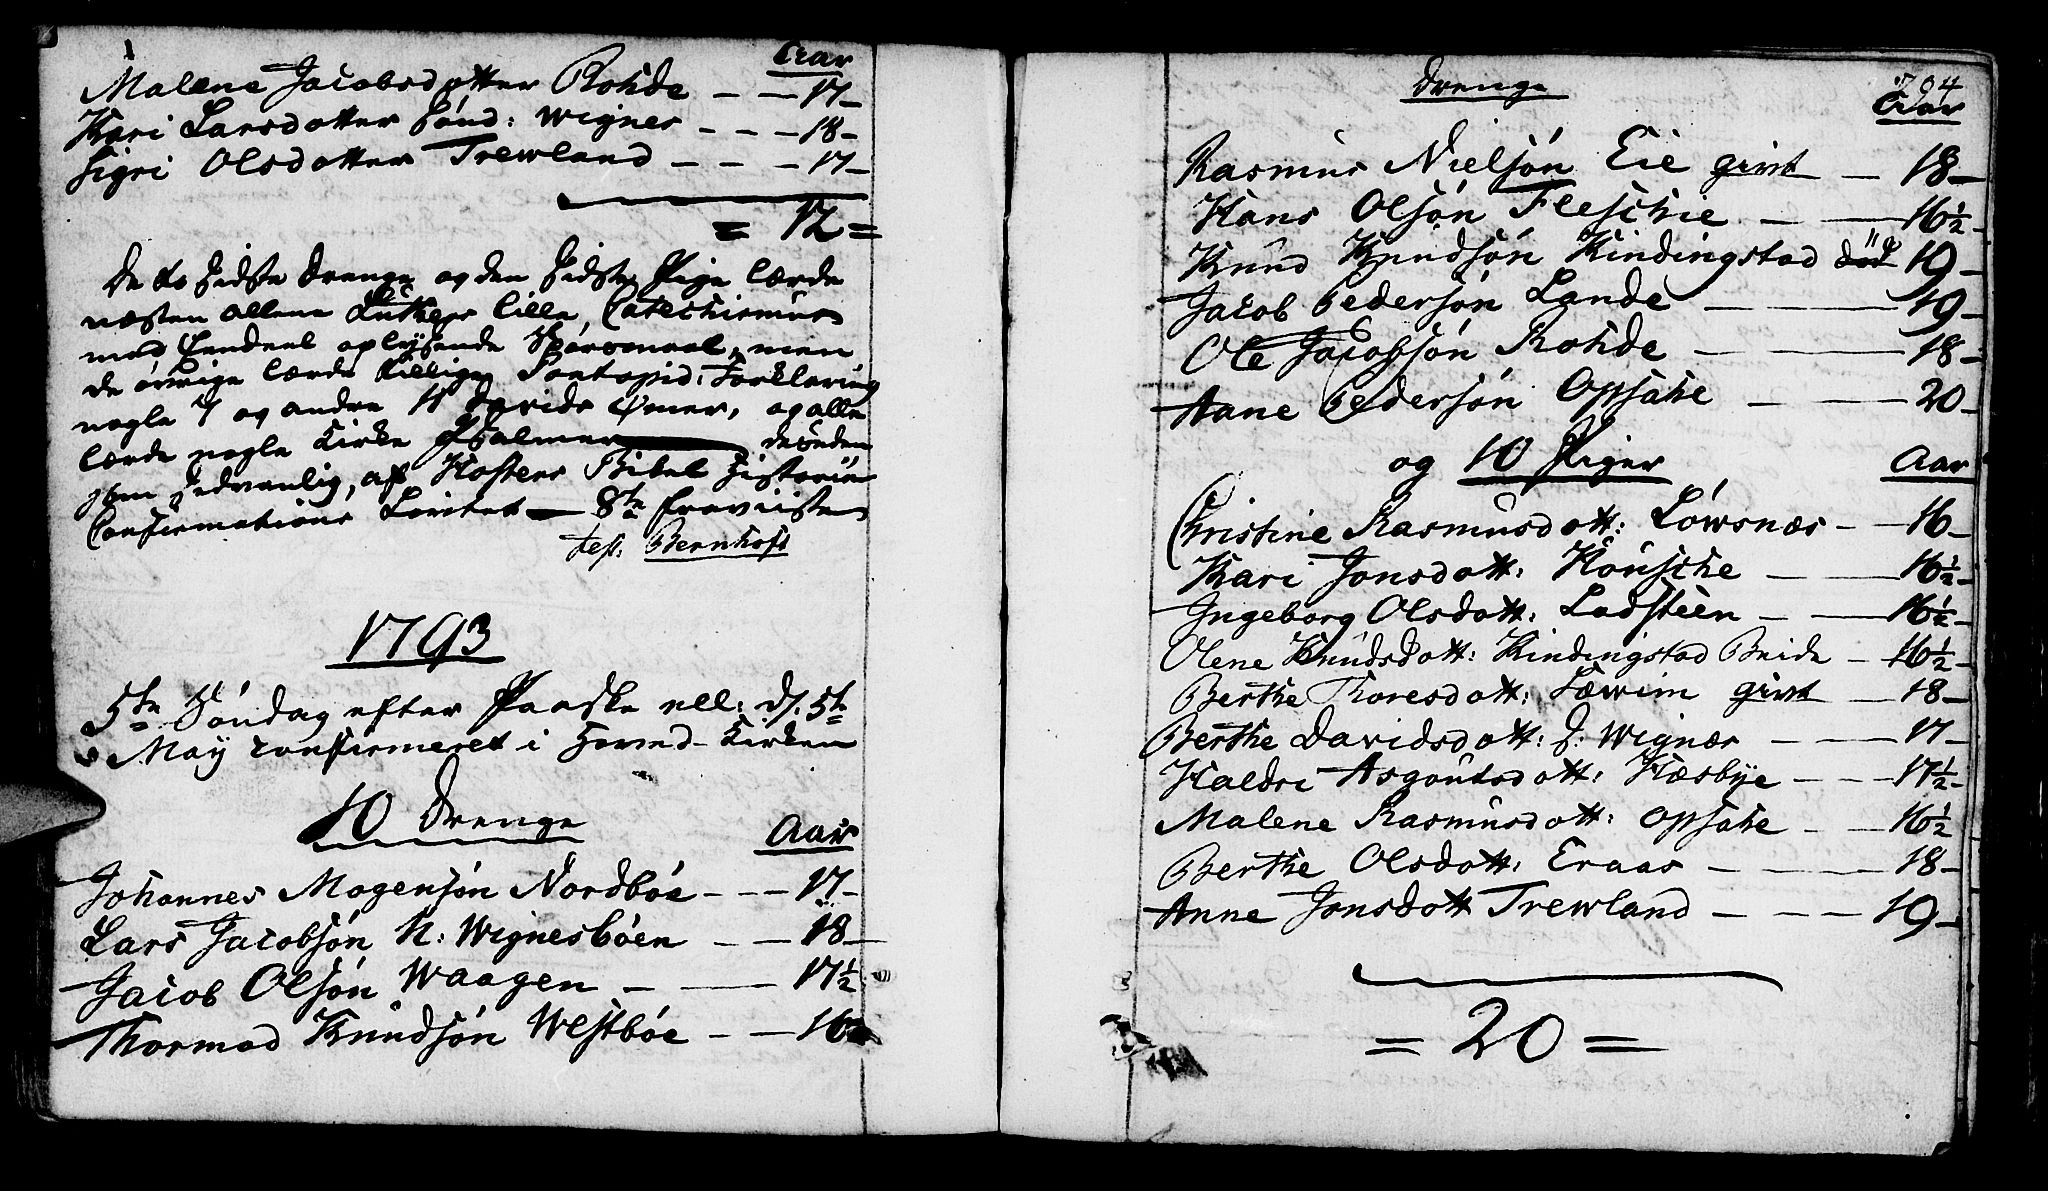 Aar
Malene Jacobsdotter Rohde - - 17 -
Kari Larsdotter Sönd: Wignes - - - 18 -
Sigri Olsdotter Trewland - - - 17 -
= 12 =
De to sidste Drenge og den sidste Pige lærde
næsten allene Luthers lille Catechismus
med endeel oplysende Spörsmaal, men
de övrige lærde tillige Pontopid: Forklaring
nogle 7 og andre 11 Davids, og alle
lærde nogle Kirke Psalmer desuden
som sedvanlig, af Hofters Bibel Historie
Confirmations Löftet — 8te
Test: Bernhoft
1793
5te Söndag efter Paaske ell: d. 5te
May confirmeret i Hoved-Kirken
10 Drenge Aar
Johannes Mogensön Nordböe - - - 17 -
Lars Jacobsön N: Wignesböen - - 18 -
Jacob Olsön Waagen - — 17 1/2
Thormod Knudsön Westböe - - 16
Drenge 204
Aar
Rasmus Nielsön Eie givt - 18 -
Hans Olsön Fleschie - — 16 1/2 -
Knud Knudsön Kindingstad död 19 -
Jacob Pedersön Lande — 19 -
Ole Jacobsön Rohde - — 18 -
Aane Pedersön Opsahe - — 20 -
og 10 Piger Aar
Christine Rasmusdott: Löwsnæs - - 16 -
Kari Jonsdott: Housche - — 16 1/2 -
Ingeborg Olsdott: Ladsteen - — 16 1/2 -
Olene Knudsdott: Kindingstad Beide - 16 1/2 -
Berthe Thoresdott: Særvim givt - 18 -
Berthe Davidsdott: S: Wignæs - — 17 -
Haldri Asgoutsdott: Hæsbye - - - 17 1/2 -
Malene Rasmusdott: Opsahe - - 16 1/2
Berthe Olsdott: Eraas - — 18 -
Anne Jonsdott Trewland - - - 19 -
= 20 =